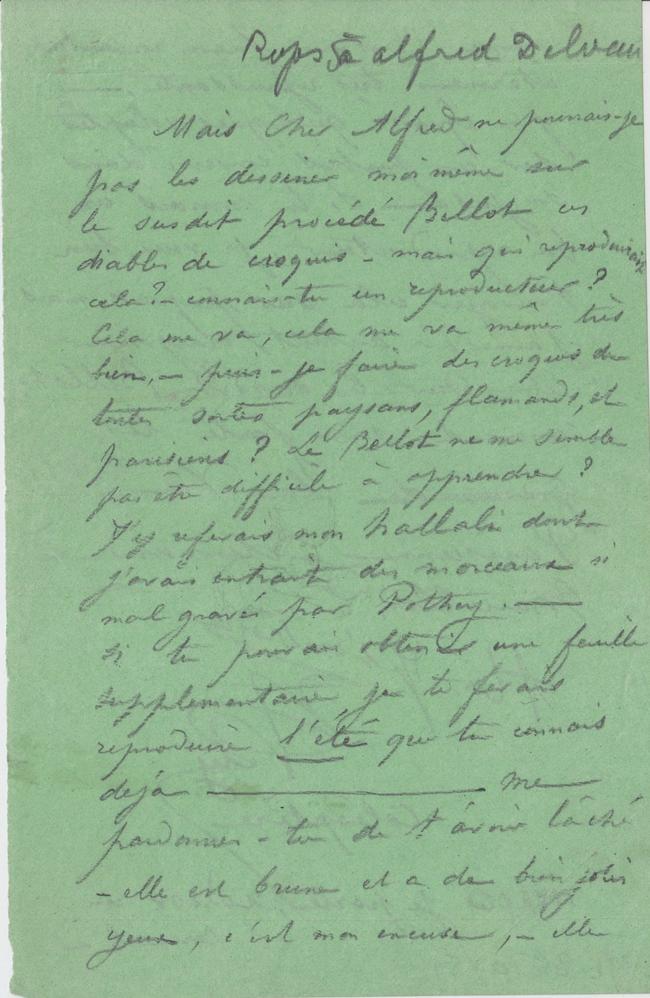 Rops à Alfred Delvau
Mais Cher Alfred ne pourrais-je
pas les dessiner moi même sur
le susdit procédé Bellot ces
diables de croquis – mais qui reproduirait
cela ? – connais-tu un reproducteur ?
Cela me va, cela me va même très
bien, – puis-je faire des croquis de
toutes sortes paysans, flamands, et
parisiens ? Le Bellot ne me semble
pas être difficile à apprendre ?
J'y referais mon hallali dont
j'avais extrait des morceaux si
mal gravés par Pothey. —
si tu pouvais obtenir une feuille
supplémentaire, je te ferais
reproduire l'été que tu connais
déjà ——— me
pardonnes-tu de t'avoir lâché
– elle est brune et a de bien jolis
yeux, c'est mon excuse, – elle